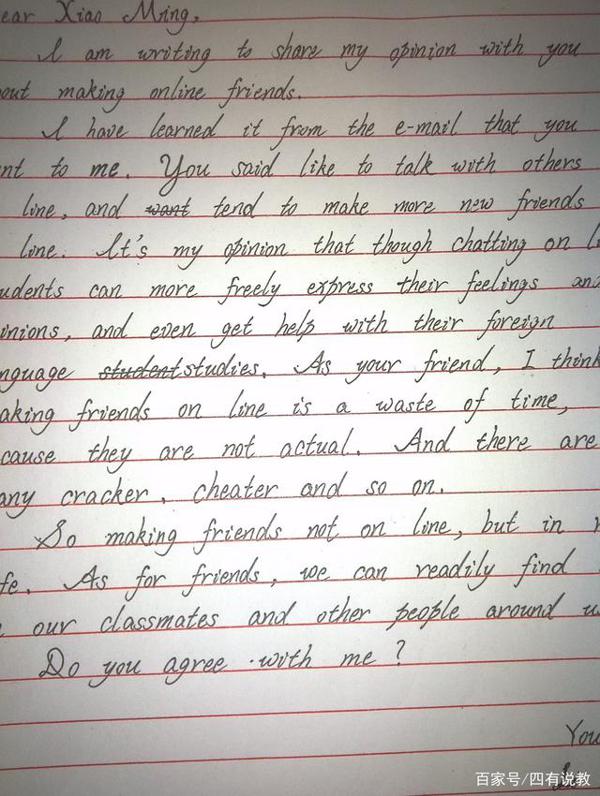 ear Xiao Ming,
I am writing to share my opinion with you
out making online friends.
I have learned it from the e-mail that you
nt to me. You said like to talk with others
line, and want tend to make more new friends
line. It's my opinion that though chatting on li
udents can more freely express their feelings and
inions, and even get help with their foreign
nguage student studies. As your friend, I think
aking friends on line is a waste of time,
cause they are not actual. And there are
any cracker, cheater and so on.
So making friends not on line, but in r
fe. As for friends, we can readily find
our classmates and other people around us
Do you agree with me?
You
百家号/四有说教